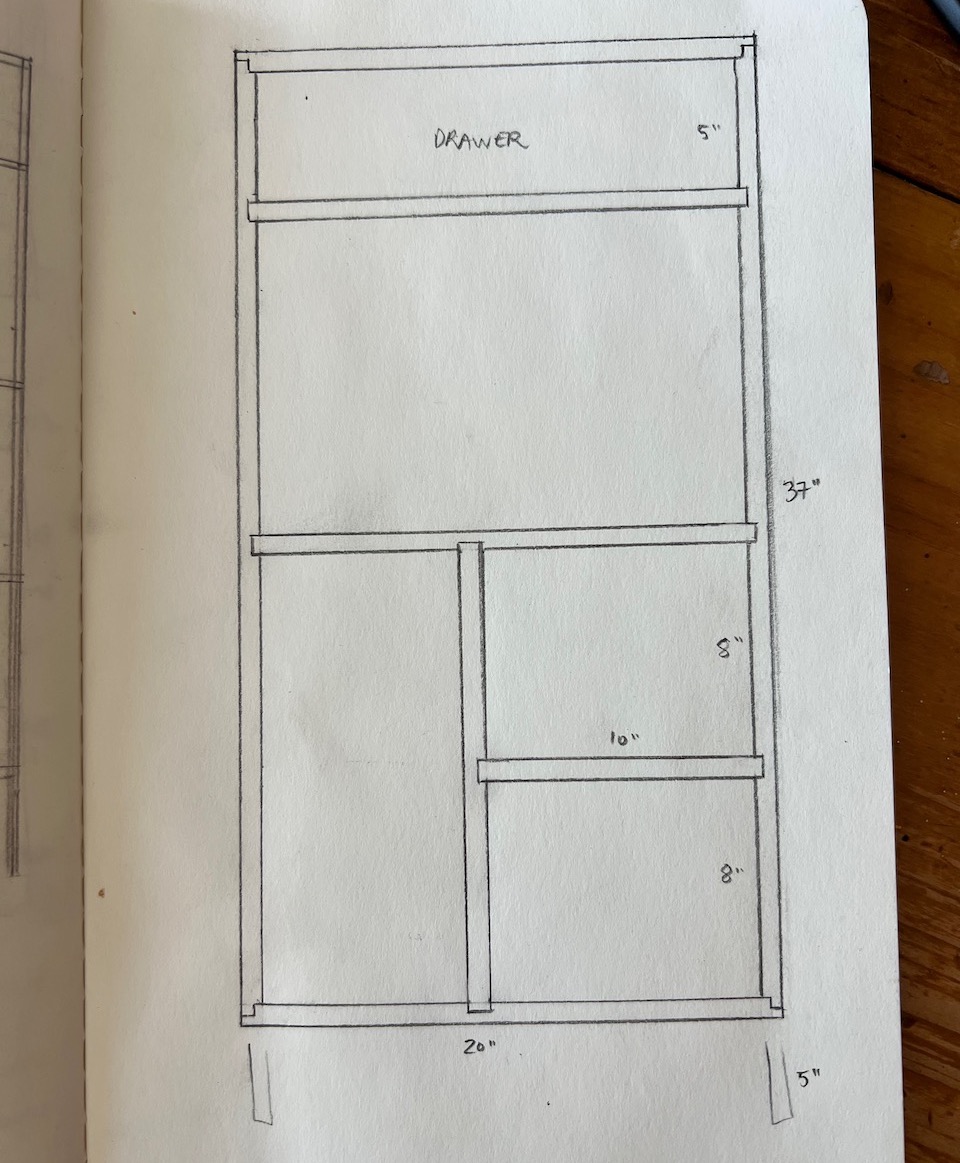 DRAWER
5"
37"
8"
10"
8"
20"
5"